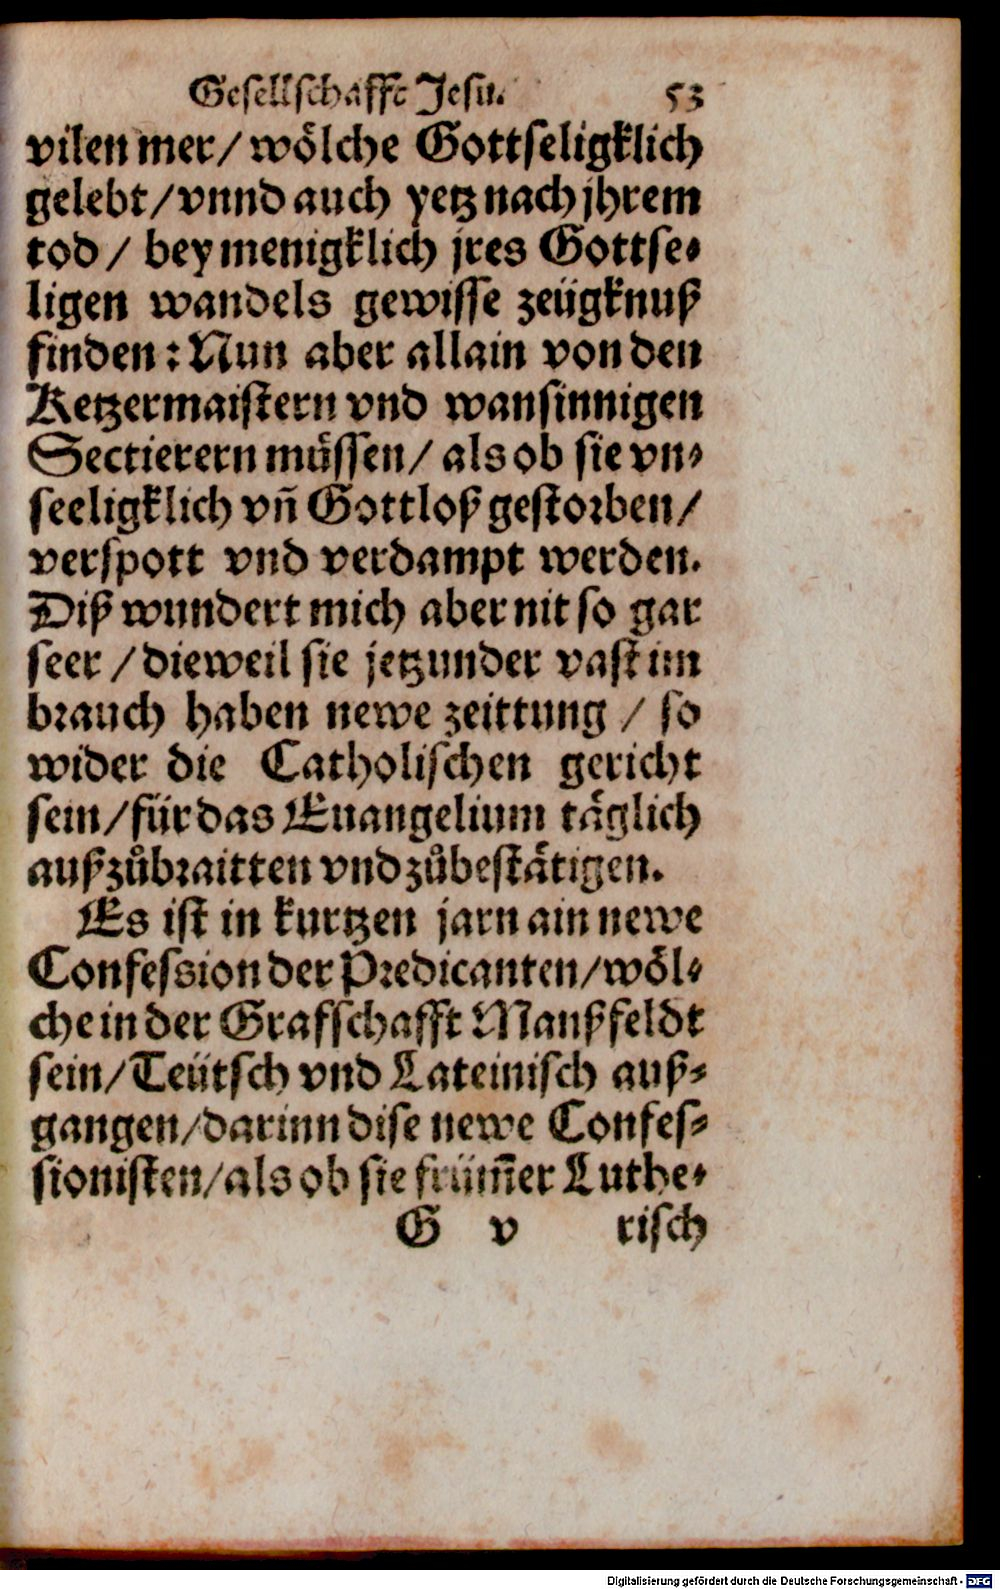 Gesellschafft Jesu. 53
vilen mer / wölche Gottseligklich
gelebt / vnnd auch yetz nach jhrem
tod / bey menigklich jres Gottse⸗
ligen wandels gewisse zeügknuß
finden : Nun aber allain von den
Ketzermaistern vnd wansinnigen
Sectierern müssen / als ob sie vn⸗
seeligklich vñ Gottloß gestorben /
verspott vnd verdampt werden.
Diß wundert mich aber nit so gar
seer / dieweil sie jetzunder vast im
brauch haben newe zeittung / so
wider die Catholischen gericht
sein / für das Euangelium täglich
außzůbraitten vnd zůbestätigen.
Es ist in kurtzen jarn ain newe
Confession der Predicanten / wöl⸗
che in der Grafschafft Manßfeldt
sein / Teütsch vnd Lateinisch auß⸗
gangen / darinn dise newe Confes⸗
sionisten / als ob sie früm̃er Luthe⸗
G v risch
Digitalisierung gefördert durch die Deutsche Forschungsgemeinschaft - DFG